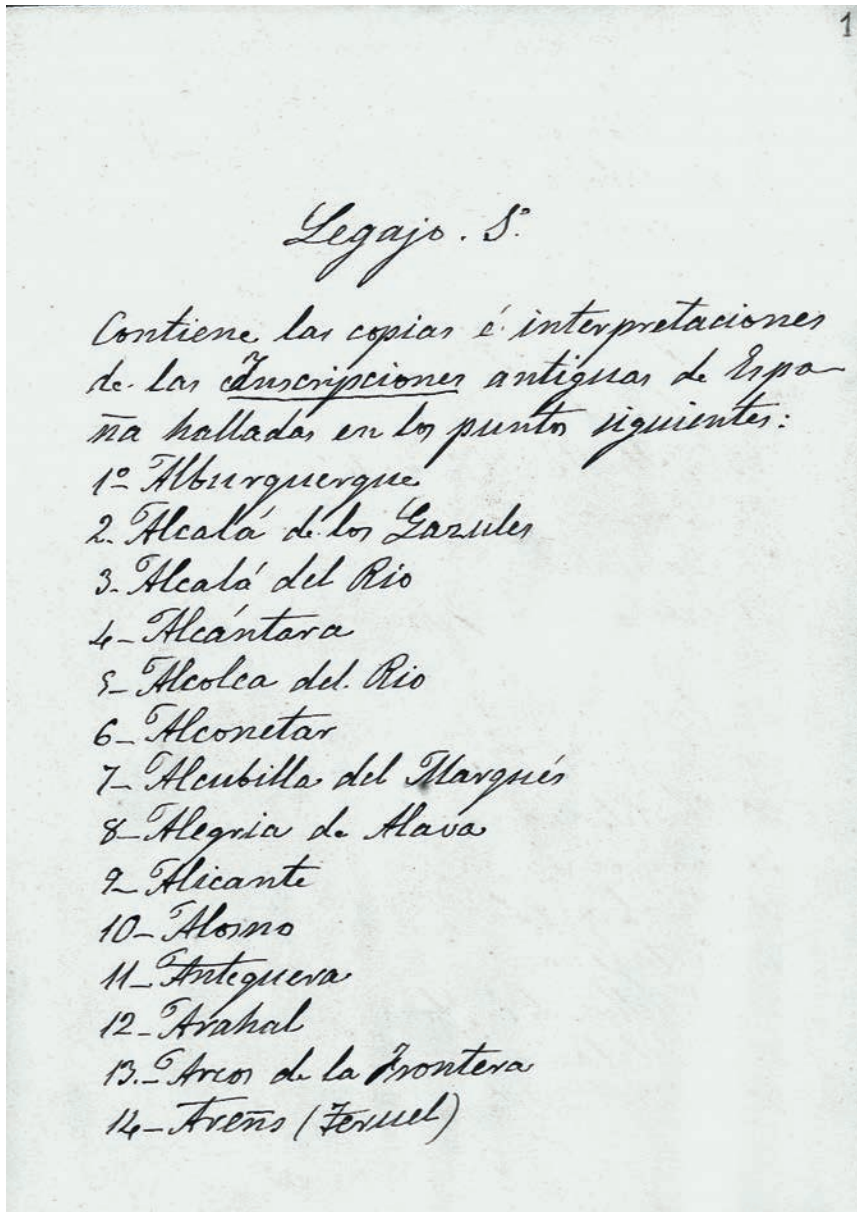 1
Legajo. 5º
Contiene las copias é interpretaciones
de las Inscripciones antiguas de Espa-
ña halladas en los puntos siguientes:
1º Alburquerque
2. Alcalá de los Gazules
3- Alcalá del Rio
4- Alcántara
5- Alcolea del Rio
6- Alconetar
7- Alcubilla del Marqués
8- Alegria de Alava
9- Alicante
10- Alosno
11- Antequera
12- Arahal
13.- Arcos de la Frontera
14- Areñs (Teruel)